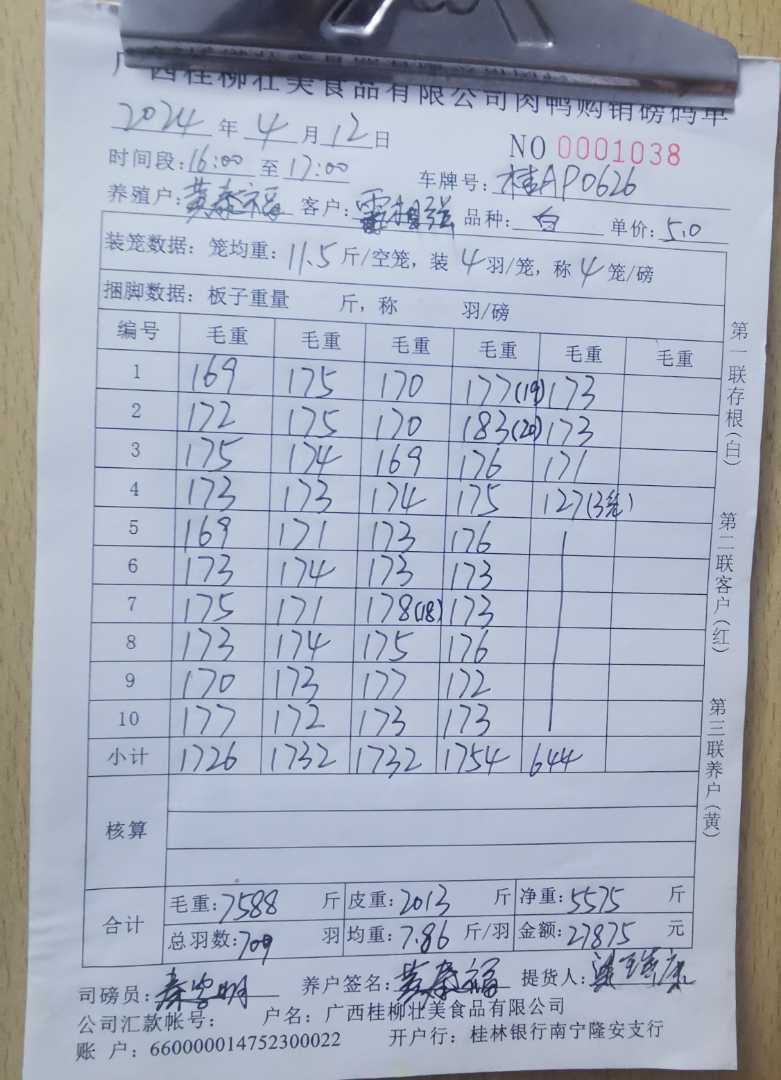 广西桂柳壮美食品有限公司肉鸭购销磅码单
2024年4月12日 NO 0001038
时间段:16:00至17:00 车牌号:桂AP0626
养殖户:黄泰福 客户: 品种:白 单价:5.0
装笼数据:笼均重:11.5斤/空笼,装4羽/笼,称4笼/磅
捆脚数据:板子重量 斤,称 羽/磅
编号 毛重 毛重 毛重 毛重 毛重 毛重
1 169 175 170 177(19) 173
2 172 175 170 183(20) 173
3 175 174 169 176 171
4 173 173 174 175 127(3笼)
5 169 171 173 176
6 173 174 173 173
7 175 171 178(18) 173
8 173 174 175 176
9 170 173 177 172
10 177 172 173 173
小计 1726 1732 1732 1754 644
核算
合计 毛重:7588斤 皮重:2013斤 净重:5575斤
总羽数:709羽 均重:7.86斤/羽 金额:27875元
司磅员: 养户签名:黄泰福 提货人:
公司汇款帐号: 户名:广西桂柳壮美食品有限公司
账户:660000014752300022 开户行:桂林银行南宁隆安支行
第一联存根(白)
第二联客户(红)
第三联养户(黄)